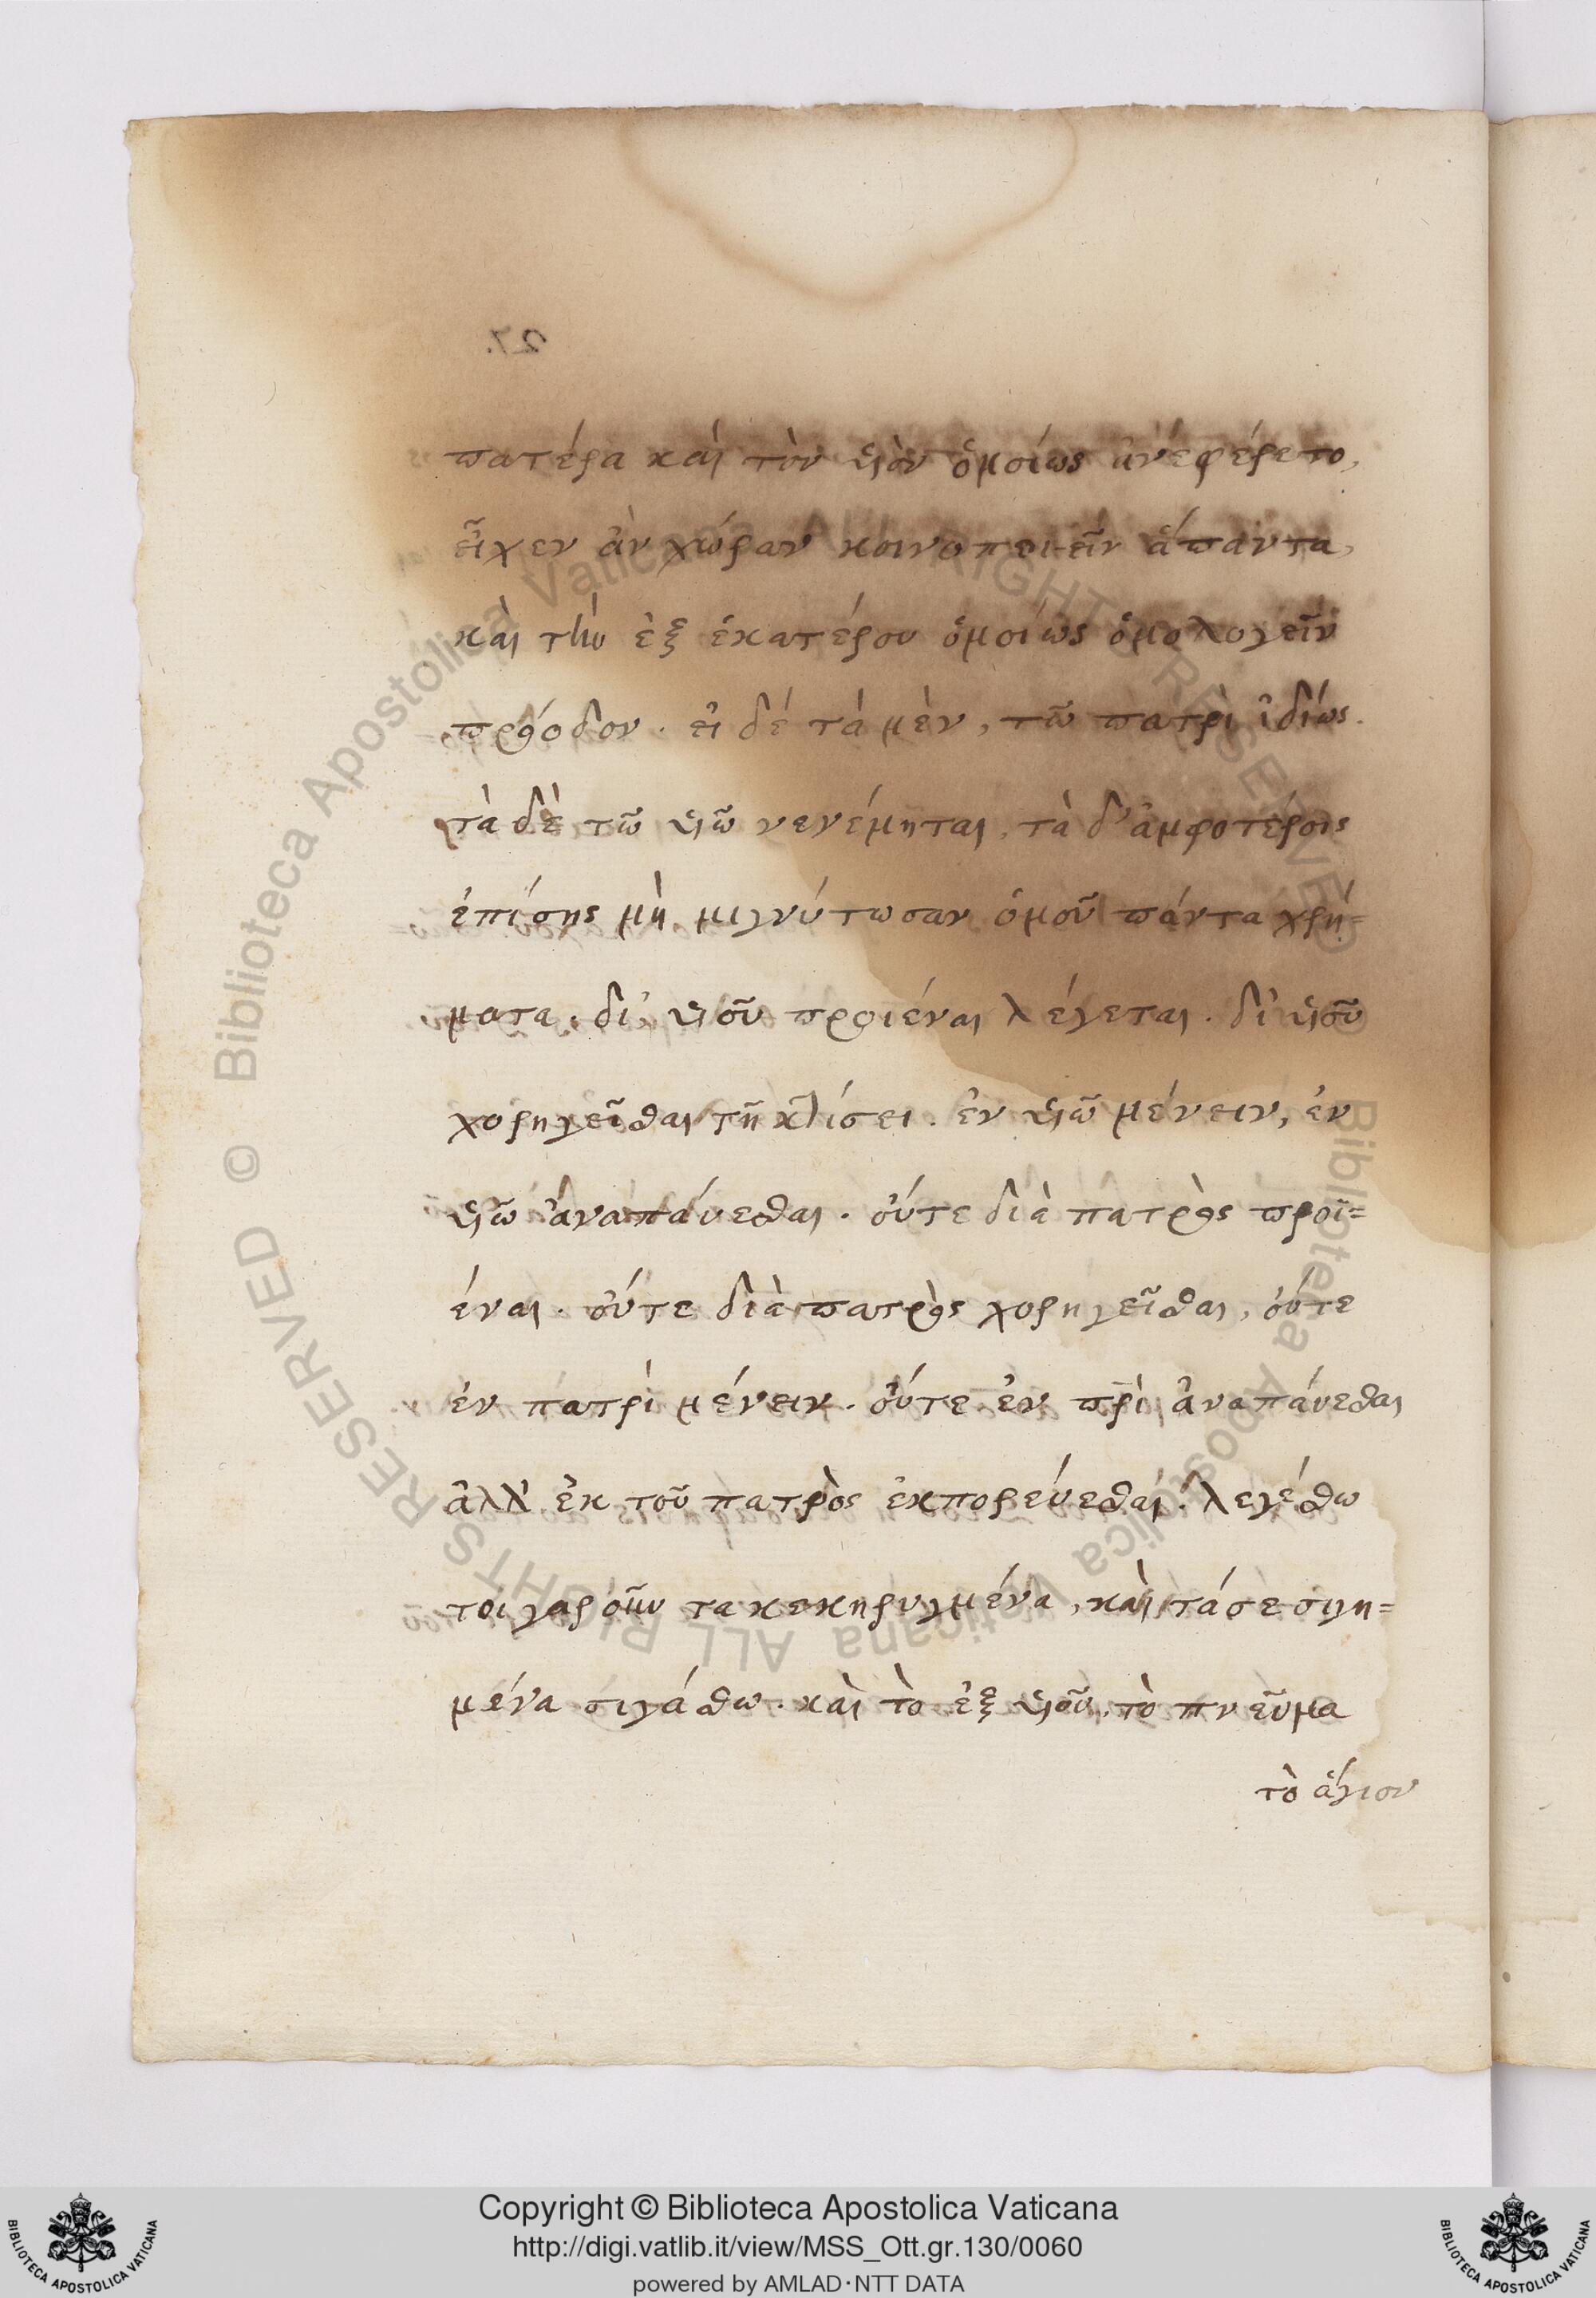 27.
πατέρα καὶ τὸν υἱὸν ὁμοίως ἀνεφέρετο,
εἶχεν ἂν χώραν κοινοποιεῖν ἅπαντα,
καὶ τὴν ἐξ ἑκατέρου ὁμοίως ὁμολογεῖν
πρόοδον. εἰ δέ τὰ μὲν, τῶ πατρὶ ἰδίως.
τὰ δὲ τῶ υἱῶ νενέμηται, τὰ δ' ἀμφοτέροις
ἐπίσης μὴ μιγνύτωσαν ὁμοῦ πάντα χρή=
ματα. δι' υἱοῦ προιέναι λέγεται. δι' υἱοῦ
χορηγεῖσθαι τῆ κτίσει. ἐν υἱῶ μένειν, ἐν
υἱῶ ἀναπάυεσθαι. οὔτε διὰ πατρὸς προϊ=
έναι. οὔτε διὰ πατρὸς χορηγεῖσθαι, οὔτε
ἐν πατρὶ μένειν. οὔτε ἐν πρὶ ἀναπάυεσθαι
ἀλλ' ἐκ τοῦ πατρὸς ἐκπορεύεσθαι. λεγέσθω
τοιγαροῦν τα κεκηρυγμένα, καὶ τά σεσιγη=
μένα σιγάσθω. καὶ τὸ ἐξ υἱοῦ, τὸ πνεῦμα
τὸ ἅγιον
© Biblioteca Apostolica Vaticana ALL RIGHTS RESERVED
Biblioteca Apostolica Vaticana ALL RIGHTS RESERVED
Copyright © Biblioteca Apostolica Vaticana
http://digi.vatlib.it/view/MSS_Ott.gr.130/0060
powered by AMLAD·NTT DATA
BIBLIOTECA APOSTOLICA VATICANA
BIBLIOTECA APOSTOLICA VATICANA